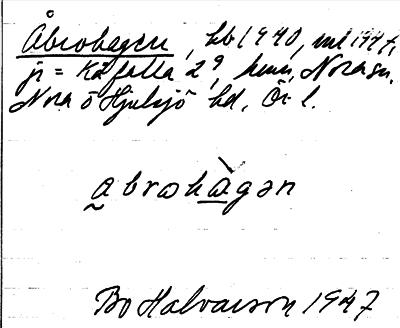 Åbrohagen, hb 1940, ml 1947,
j = Kåfalla 2⁹, hmn, Nora sn,
Nora o Hjulsjö hd, Ör l.
abrohàgən
Bo Halvarson 1947